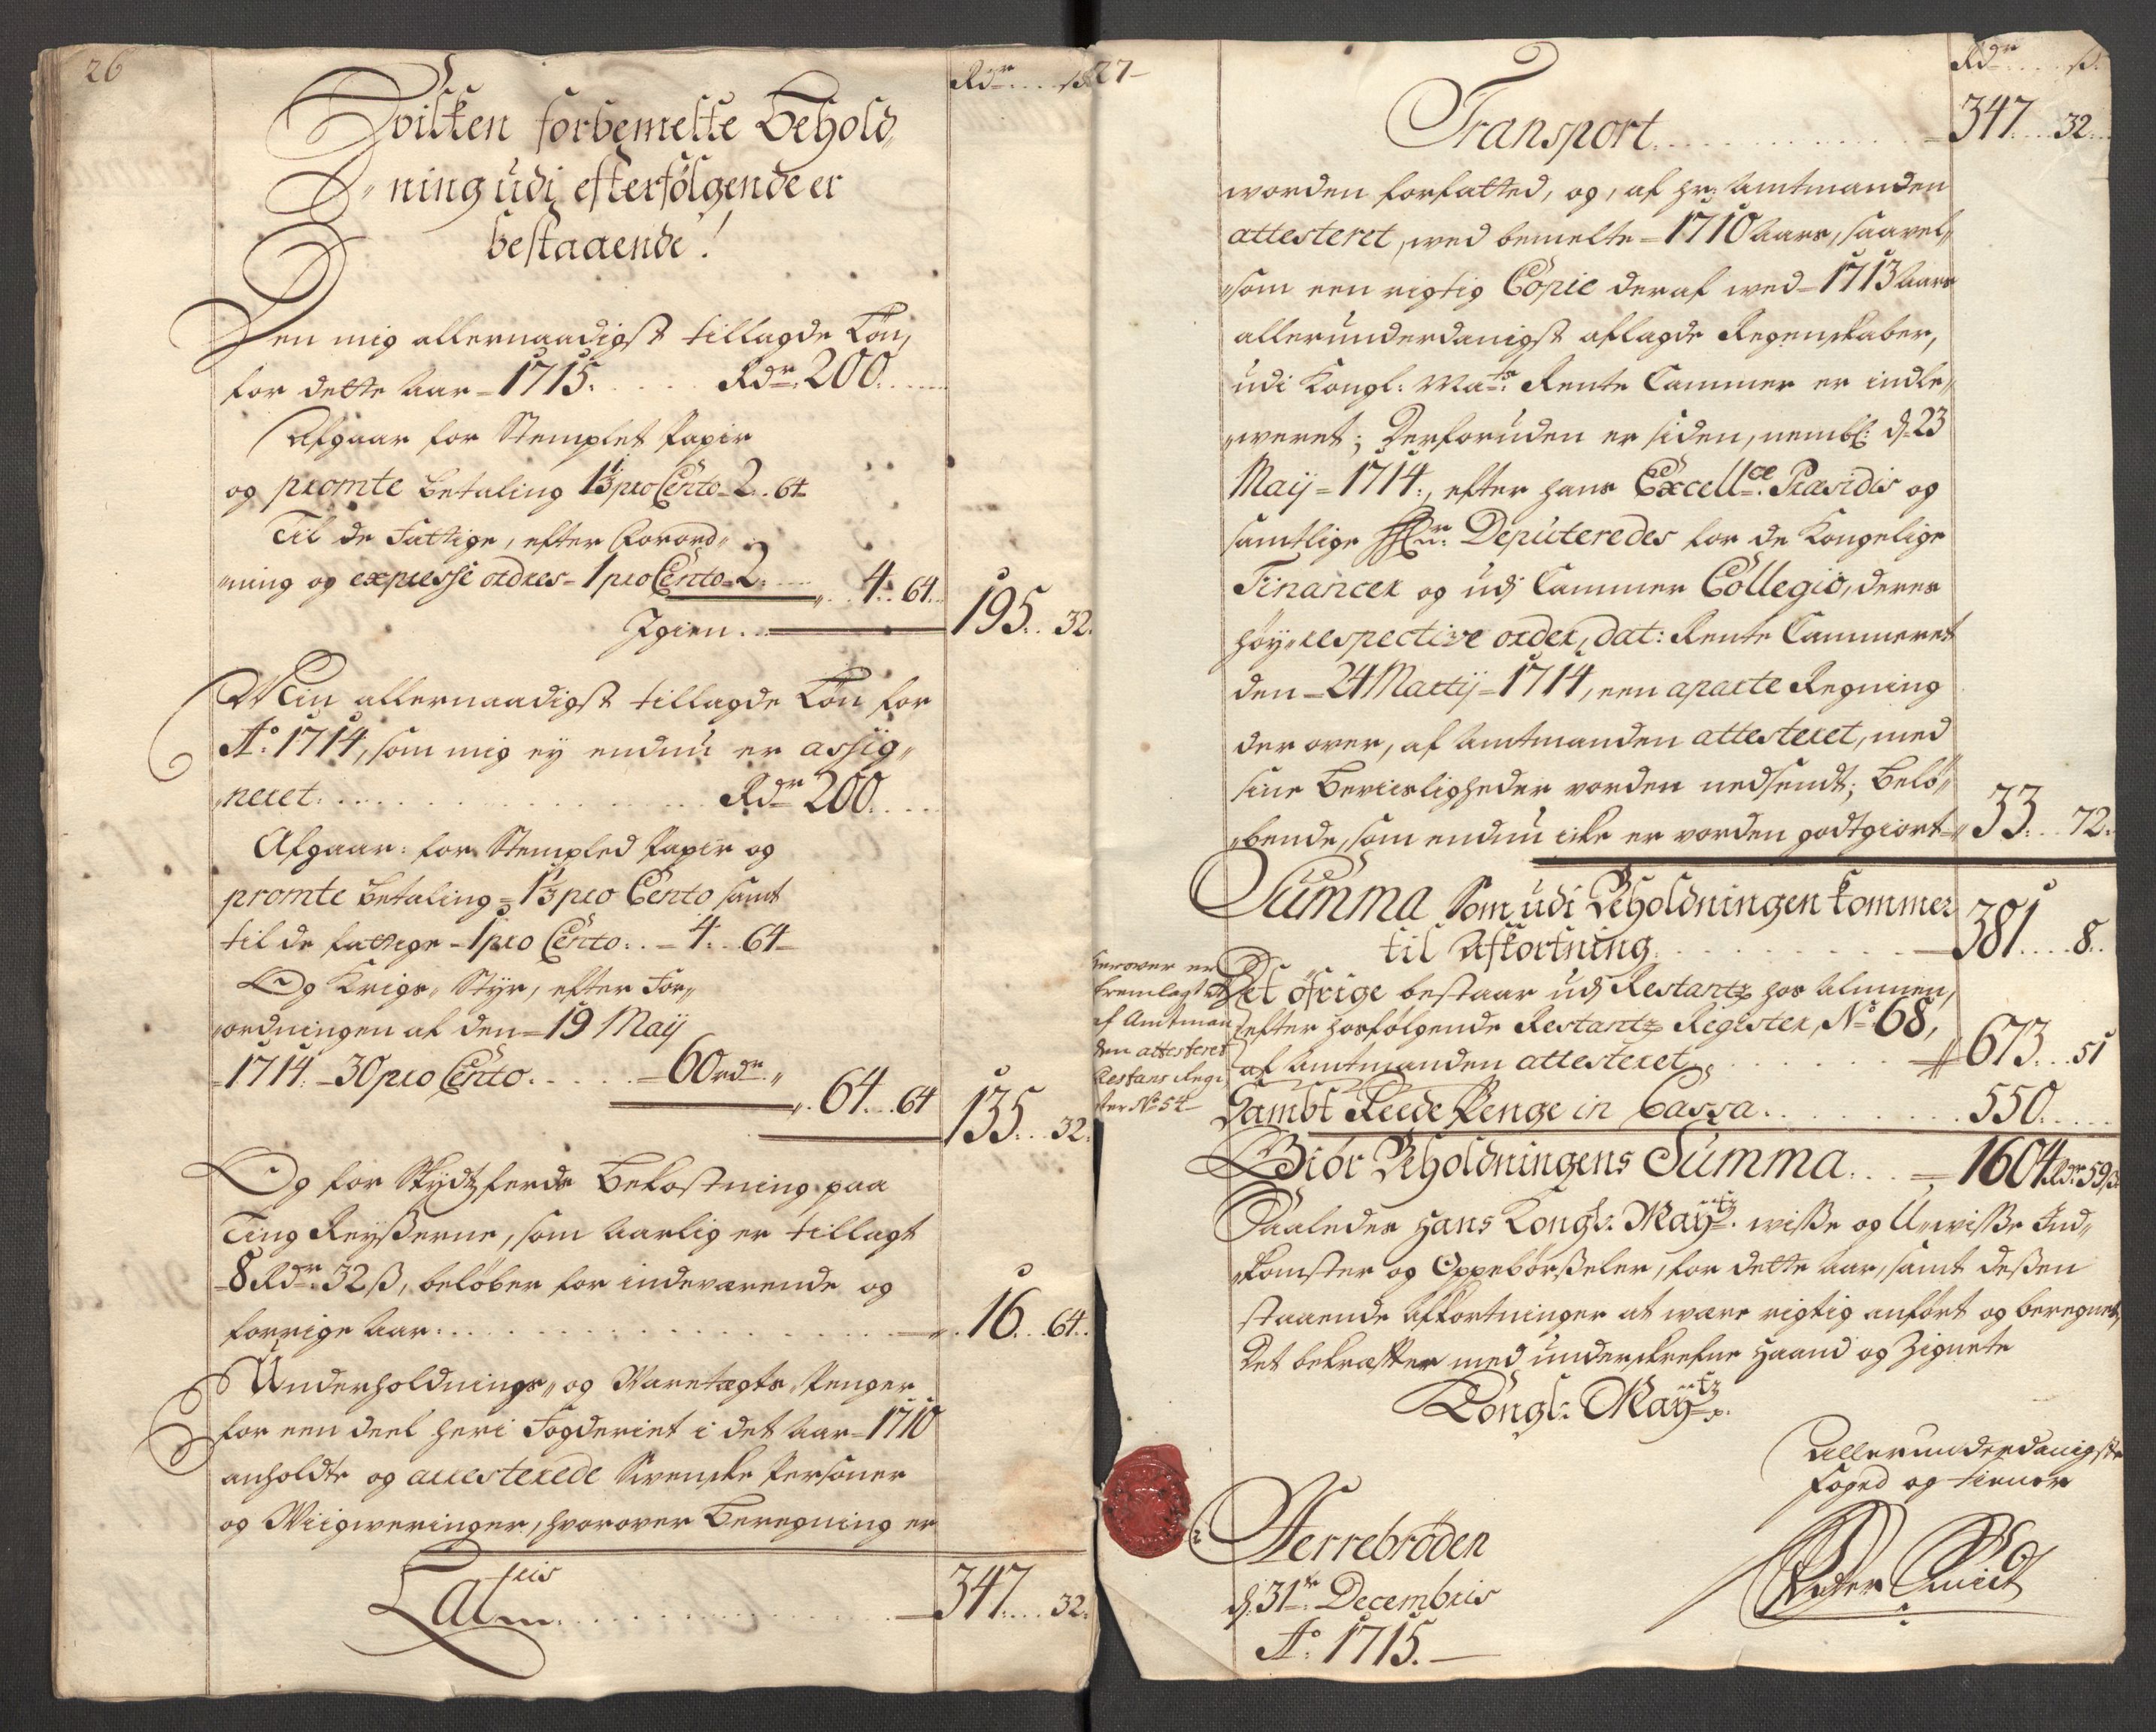 26
Rdr. ß
Hvilken forbemelte Behold„
„ning udj efterfølgende er
bestaaende!
Den mig allernaadigst tillagde Løn,
for dette Aar = 1715. Rdr. 200.
Afgaar for Stemplet Papir
og promte betaling 1⅓ pro Cento = 2. 64
Til de Fattige, efter Forord„
„ning og expresse ordres = 1 pro Cento = 2. 4. 64.
Igien. 195. 32.
Min allernaadigst tillagde Løn for
Ao. 1714, som mig ey endnu er assig„
„neret. Rdr. 200.
Afgaar: for Stempled Papir og
promte betaling = 1⅓ pro Cento samt
til de fattige = 1 pro Cento. 4. 64
Og Krigs„ Styr, efter For„
„ordningen af den = 19 Maij
= 1714. = 30 pro Cento. = 60 rdr. „ 64. 64
135. 32.
Og for Skydtzferds Bekostning paa
Ting Reyßerne, som Aarlig er tillagt
= 8 Rdr. 32 ß, beløber for indeværende og
forrige Aar. 16. 64.
Underholdnings„ og Waretægts Penger
for een deel heri Fogderiet i det Aar = 1710
anholdte og arresterede Svenske Personer
og , hvorover Beregning er
Lateris 347. 32.
27
Rdr. ß.
Transport. 347. 32.
worden forfatted, og, af Hr: Amtmanden
attesteret, wed bemelte = 1710 Aars, saavel„
„som een rigtig Copie deraf wed = 1713 Aars
allerunderdanigst aflagde Regenskaber,
udi Kongl: Mats: Rente Cammer er indle„
„weret; Derforuden er siden, nembl: d. 23
Maij = 1714., efter hans Excellce. Præsidis og
samtlige Hrr. Deputeredes for de Kongelige
Financer og udj Cammer Collegio, deres
høy„respective order, dat: Rente Cammeret
den = 24 Martij = 1714, een aparte Regning
derover, af Amtmanden attesteret, med
sine Beviisligheder worden nedsendt; Belø„
„bende, som endnu icke er worden godtgiort = 33. 72.
Summa Som udi Beholdningen kommer
til Afkortning. 381. 8.
Herover er
fremlagt et
af Amtman
den attesteret
Restans Regi
ster No 54
Det øfrige bestaar udj Restantz hos Almuen,
efter hosfølgende Restantz Register, No. 68,
af Amtmanden attesteret. 673. 51
Sambt Reede Penge in Cassa. 550.
Giør Beholdningens Summa. = 1604 Rdr. 59 ß
Saaledes Hans Kongl: Mayttz. wisse og Uwisse Ind„
„komster og Oppebørßeler, for dette Aar, samt deßen
staaende Afkortninger at være rigtig anført og beregnet,
Det bekræfter med underskrefne Haand og Zignete
Kongl: Mayttz.
Allerunderdanigste
Foged og tiener
Peder
Herrebrøden
d. 31te Decembris
Ao. 1715.